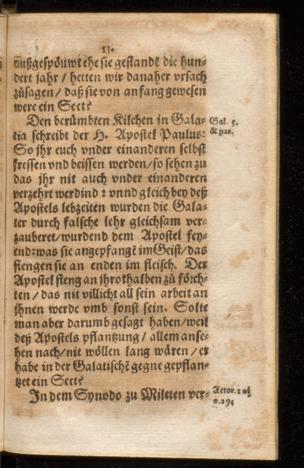 13.
außgespöuwt ehe sie gestandē die hun-
dert jahr / hetten wir danaher vrsach
zůsagen / daß sie von anfang gewesen
were ein Sect?
Den berümbten Kilchen in Gala-
tia schreibt der H. Apostel Paulus:
So jhr euch vnder einanderen selbst
fressen vnd beissen werden / so sehen zu
das jhr nit auch vnder einanderen
verzehrt werdind: vnnd gleich bey deß
Apostels lebzeiten wurden die Gala-
ter durch falsche lehr gleichsam ver-
zauberet / wurdend dem Apostel fey-
end: was sie angepfangē im Geist / das
fiengen sie an enden im fleisch. Der
Apostel fieng an jhrothalben zů förch-
ten / das nit villicht all sein arbeit an
jhnen werde vmb sonst sein. Solte
man aber darumb gesagt haben / weil
deß Apostels pflantzung / allem anse-
hen nach / nit wöllen lang wären / er
habe in der Galatischē gegne gepflan-
tzet ein Sect?
In dem Synodo zu Mileten ver-
Gal. 5.
& pas.
Actor. 20.
v. 29.